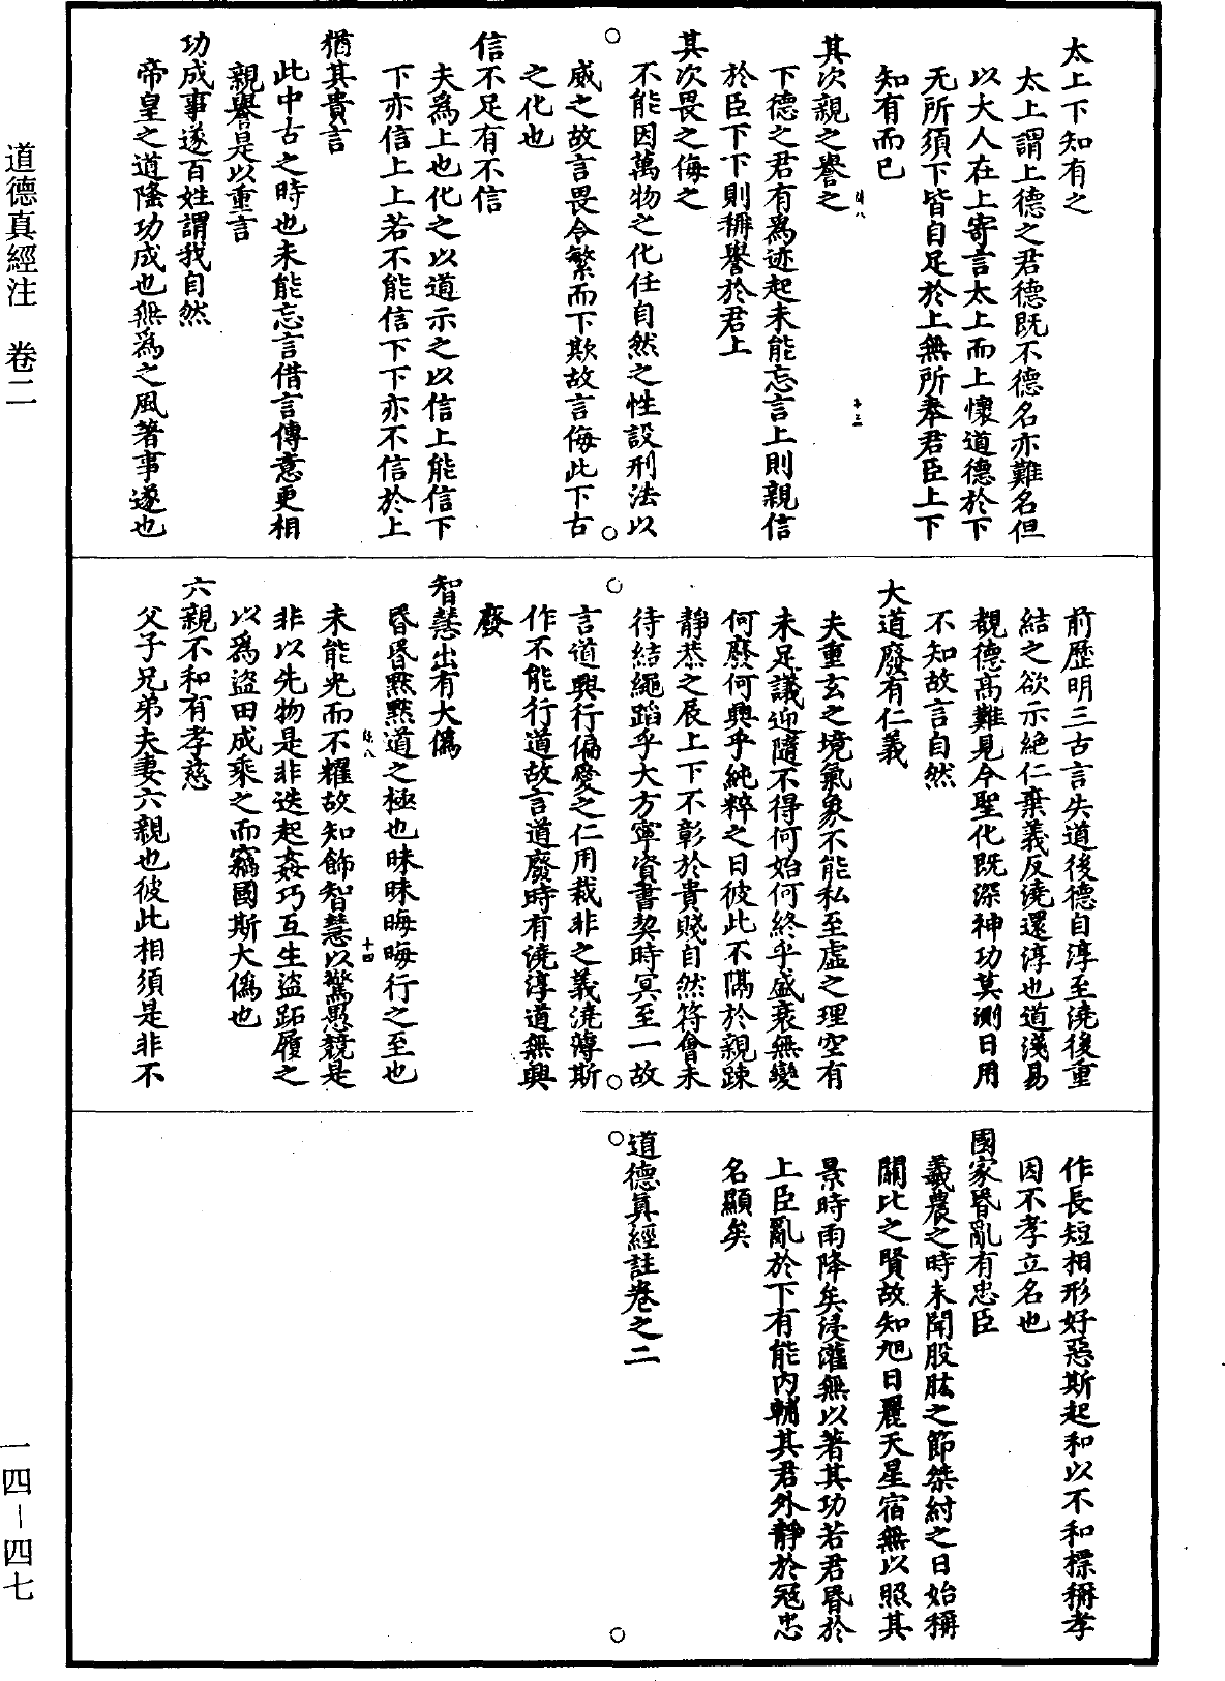 太上下知有之
太上謂上德之君德既不德名亦難名但
以大人在上寄言太上而上懷道德於下
无所須下皆自足於上無所奉君臣上下
知有而已
其次親之譽之
下德之君有為迹起未能忘言上則親信
於臣下下則稱譽於君上
其次畏之侮之
不能因萬物之化任自然之性設刑法以
威之故言畏令繁而下欺故言侮此下古
之化也
信不足有不信
夫為上也化之以道示之以信上能信下
下亦信上上若不能信下下亦不信於上
猶其貴言
此中古之時也未能忘言借言傳意更相
親譽是以重言
功成事遂百姓謂我自然
帝皇之道隆功成也無為之風著事遂也
前歷明三古言失道後德自淳至澆後重
結之欲示絕仁棄義反澆還淳也道淺易
覩德高難見今聖化既深神功莫測日用
不知故言自然
大道廢有仁義
夫重玄之境氣象不能私至虛之理空有
未足議迎隨不得何始何終乎盛衰無變
何廢何興乎純粹之日彼此不隔於親踈
靜恭之辰上下不彰於貴賤自然符會未
待結繩蹈乎大方寧資書契時冥至一故
言道興行偏愛之仁用裁非之義澆薄斯
作不能行道故言道廢時有澆淳道無興
廢
智慧出有大偽
昏昏默默道之極也昧昧晦晦行之至也
未能光而不耀故知飾智慧以驚愚競是
非以先物是非迭起姦巧互生盜跖履之
以為盜田成乘之而竊國斯大偽也
六親不和有孝慈
父子兄弟夫妻六親也彼此相須是非不
作長短相形好惡斯起和以不和標稱孝
因不孝立名也
國家昏亂有忠臣
羲農之時未聞股肱之節桀紂之日始稱
關比之賢故知旭日麗天星宿無以照其
景時雨降矣浸灌無以著其功若君昏於
上臣亂於下有能內輔其君外靜於寇忠
名顯矣
道德真經註卷之二
道德真經注　卷二
一四－四七